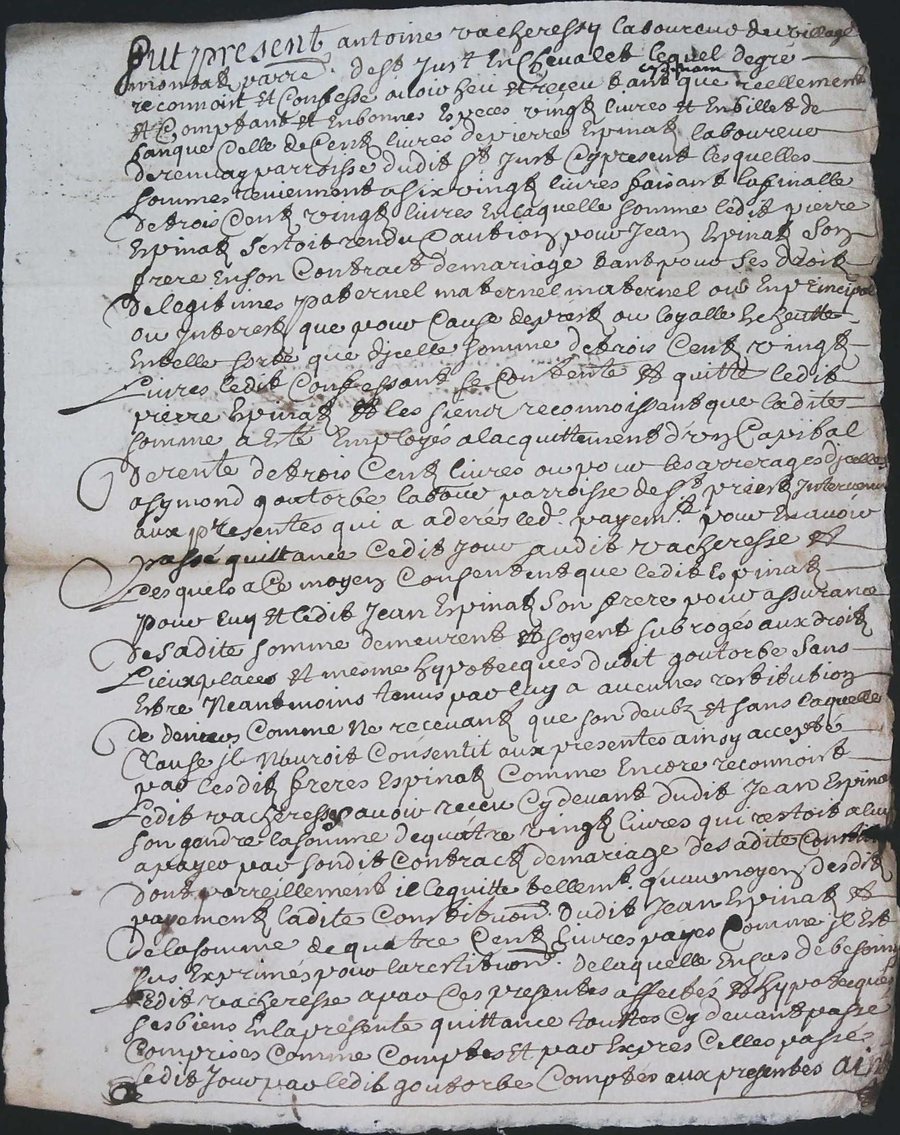 Fut present antoine vacheressy laboureur du village
montat parre. de st Just En Chevalet lequel de gré
reconnoit Et Confesse avoir heu et receu tant que cy devant reellement
Et Comptant Et En bonnes Especes vingt livres Et En billet de
banque Celle de Cent livres de pierre Espinat laboureur
de remay parroisse dudit St Just Cy present lesquelles
sommes reviennent a six vingt livres faisant la finalle
de trois Cent vingt livres En laquelle somme ledit pierre
Espinat sestoit rendu Caution pour Jean Espinat son
frere En son Contract de mariage tant pour ses droitz
de legitimes paternel maternel maternel ou En principal
ou Interest que pour Cause de prest ou loyalle
En telle sorte que dicelle somme de trois Cent vingt
Livres ledit Confessant se Contente Et quitte ledit
pierre Espinat Et les siens reconnoissent que ladite
somme a Esté Employés a lacquittement d'un Capital
de rente de trois Cent livres ou pour les arrerages dicelles
a symond goutorbe labour parroisse de St priest Intervenu
aux presentes qui a aderés led. payemt. pour En avoir
passé quittance Cedit Jour audit vacheresse Et
Lesquels a Ce moyen Consentent que ledit Espinat
pour luy Et ledit Jean Espinat son frere pour assurance
de sadite somme demeurent Et soyent subrogés aux droitz
Lieux places Et mesme hypotecques dudit goutorbe sans
Estre Neantmoins tenus par luy a aucunes restitution
de deniers Comme Ne recevant que son deubz Et sans laquelle
Clause il Nauroit Consentit aux presentes ainsy accepté
par lesdit freres Espinat Comme Encore reconnoit
Ledit vacheressy avoir receu Cy devant dudit Jean Espinat
son gendre la somme de quatre vingt livres qui restoit a luy
a payer par sondit Contract de mariage de sadite
dont parreillement il le quitte tellemt. quau moyen desdit
payement ladite Constituon. dudit Jean Espinat Et
de la somme de quatre Cent livres payés Comme il Est
sus Exprimés pour la restituon. de laquelle En Cas de besoin
Ledit vacheresse a par Ces presentes affectés Et hypotecqués
ses biens En la presente quittance touttes Cy devant passé
Comprises Comme Comptes Et par Expres Celles passés
Cedit Jour par ledit goutorbe Comptes aux presentes ainsy